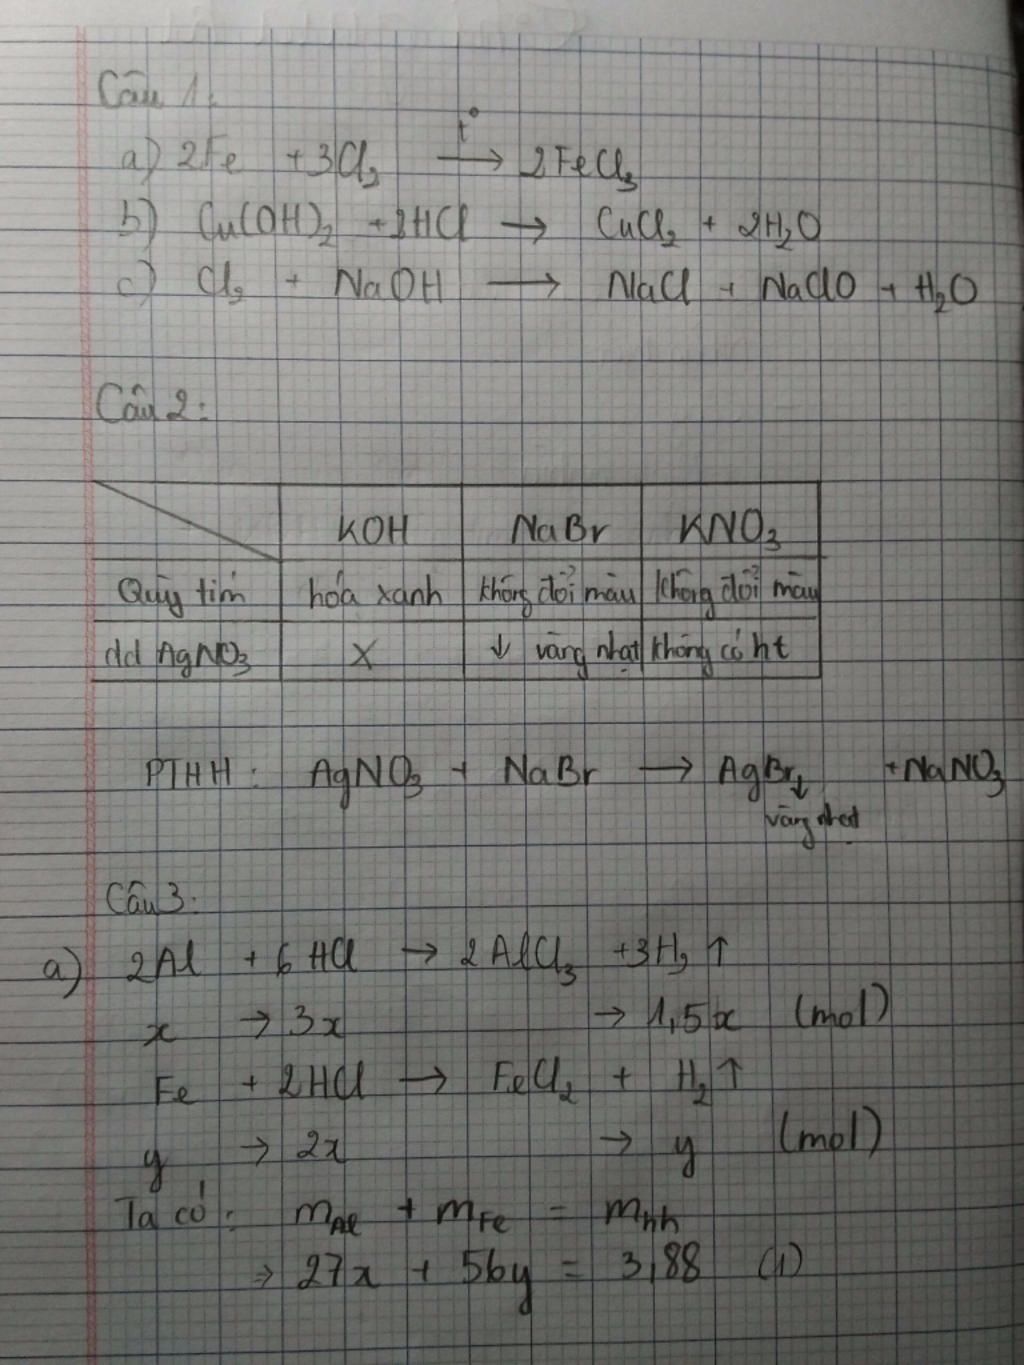 Câu 1:
t°
a) 2Fe + 3Cl₂ → 2FeCl₃
b) Cu(OH)₂ + 2HCl → CuCl₂ + 2H₂O
c) Cl₂ + NaOH → NaCl + NaClO + H₂O
Câu 2:
KOH NaBr KNO₃
Quỳ tím hóa xanh không đổi màu không đổi màu
dd AgNO₃ X ↓ vàng nhạt không có ht
PTHH: AgNO₃ + NaBr → AgBr↓ + NaNO₃
vàng nhạt
Câu 3:
a) 2Al + 6HCl → 2AlCl₃ + 3H₂↑
x → 3x → 1,5x (mol)
Fe + 2HCl → FeCl₂ + H₂↑
y → 2x → y (mol)
Ta có: mAl + mFe = mhh
⇒ 27x + 56y = 3,88 (1)